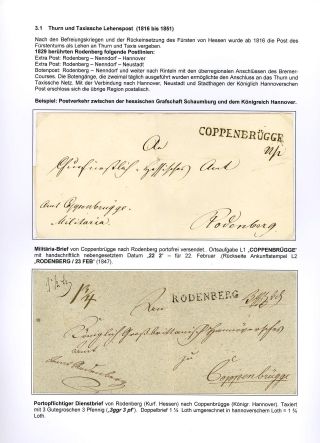 3.1 Thurn und Taxissche Lehenspost (1816 bis 1851)
Nach den Befreiungskriegen und der Rückeinsetzung des Fürsten von Hessen wurde ab 1816 die Post des
Fürstentums als Lehen an Thurn und Taxis vergeben.
1829 berührten Rodenberg folgende Postlinien:
Extra Post: Rodenberg – Nenndorf – Hannover
Extra Post: Rodenberg – Nenndorf – Neustadt
Botenpost: Rodenberg – Nenndorf und weiter nach Rinteln mit den überregionalen Anschlüssen des Bremer-
Courses. Die Botengänge, die zweimal täglich ausgeführt wurden ermöglichten den Anschluss an das Thurn und
Taxissche Netz. Mit der Verbindung nach Hannover, Neustadt und Stadthagen der Königlich Hannoverschen
Post erschloss sich die übrige Region postalisch.
Beispiel: Postverkehr zwischen der hessischen Grafschaft Schaumburg und dem Königreich Hannover.
COPPENBRÜGGE
Amt
Amt Coppenbrügge
Militaria
Rodenberg
Militaria-Brief von Coppenbrügge nach Rodenberg portofrei versendet. Ortsaufgabe L1 „COPPENBRÜGGE“
mit handschriftlich nebengesetztem Datum „22 2“ – für 22. Februar. (Rückseite Ankunftstempel L2
„RODENBERG / 23 FEB“ (1847).
RODENBERG
Den
zu
Coppenbrügge
Portopflichtiger Dienstbrief von Rodenberg (Kurf. Hessen) nach Coppenbrügge (Königr. Hannover). Taxiert
mit 3 Gutegroschen 3 Pfennig („3ggr 3 pf“). Doppelbrief 1 ¼ Loth umgerechnet in hannoverschem Loth = 1 ¾
Loth.